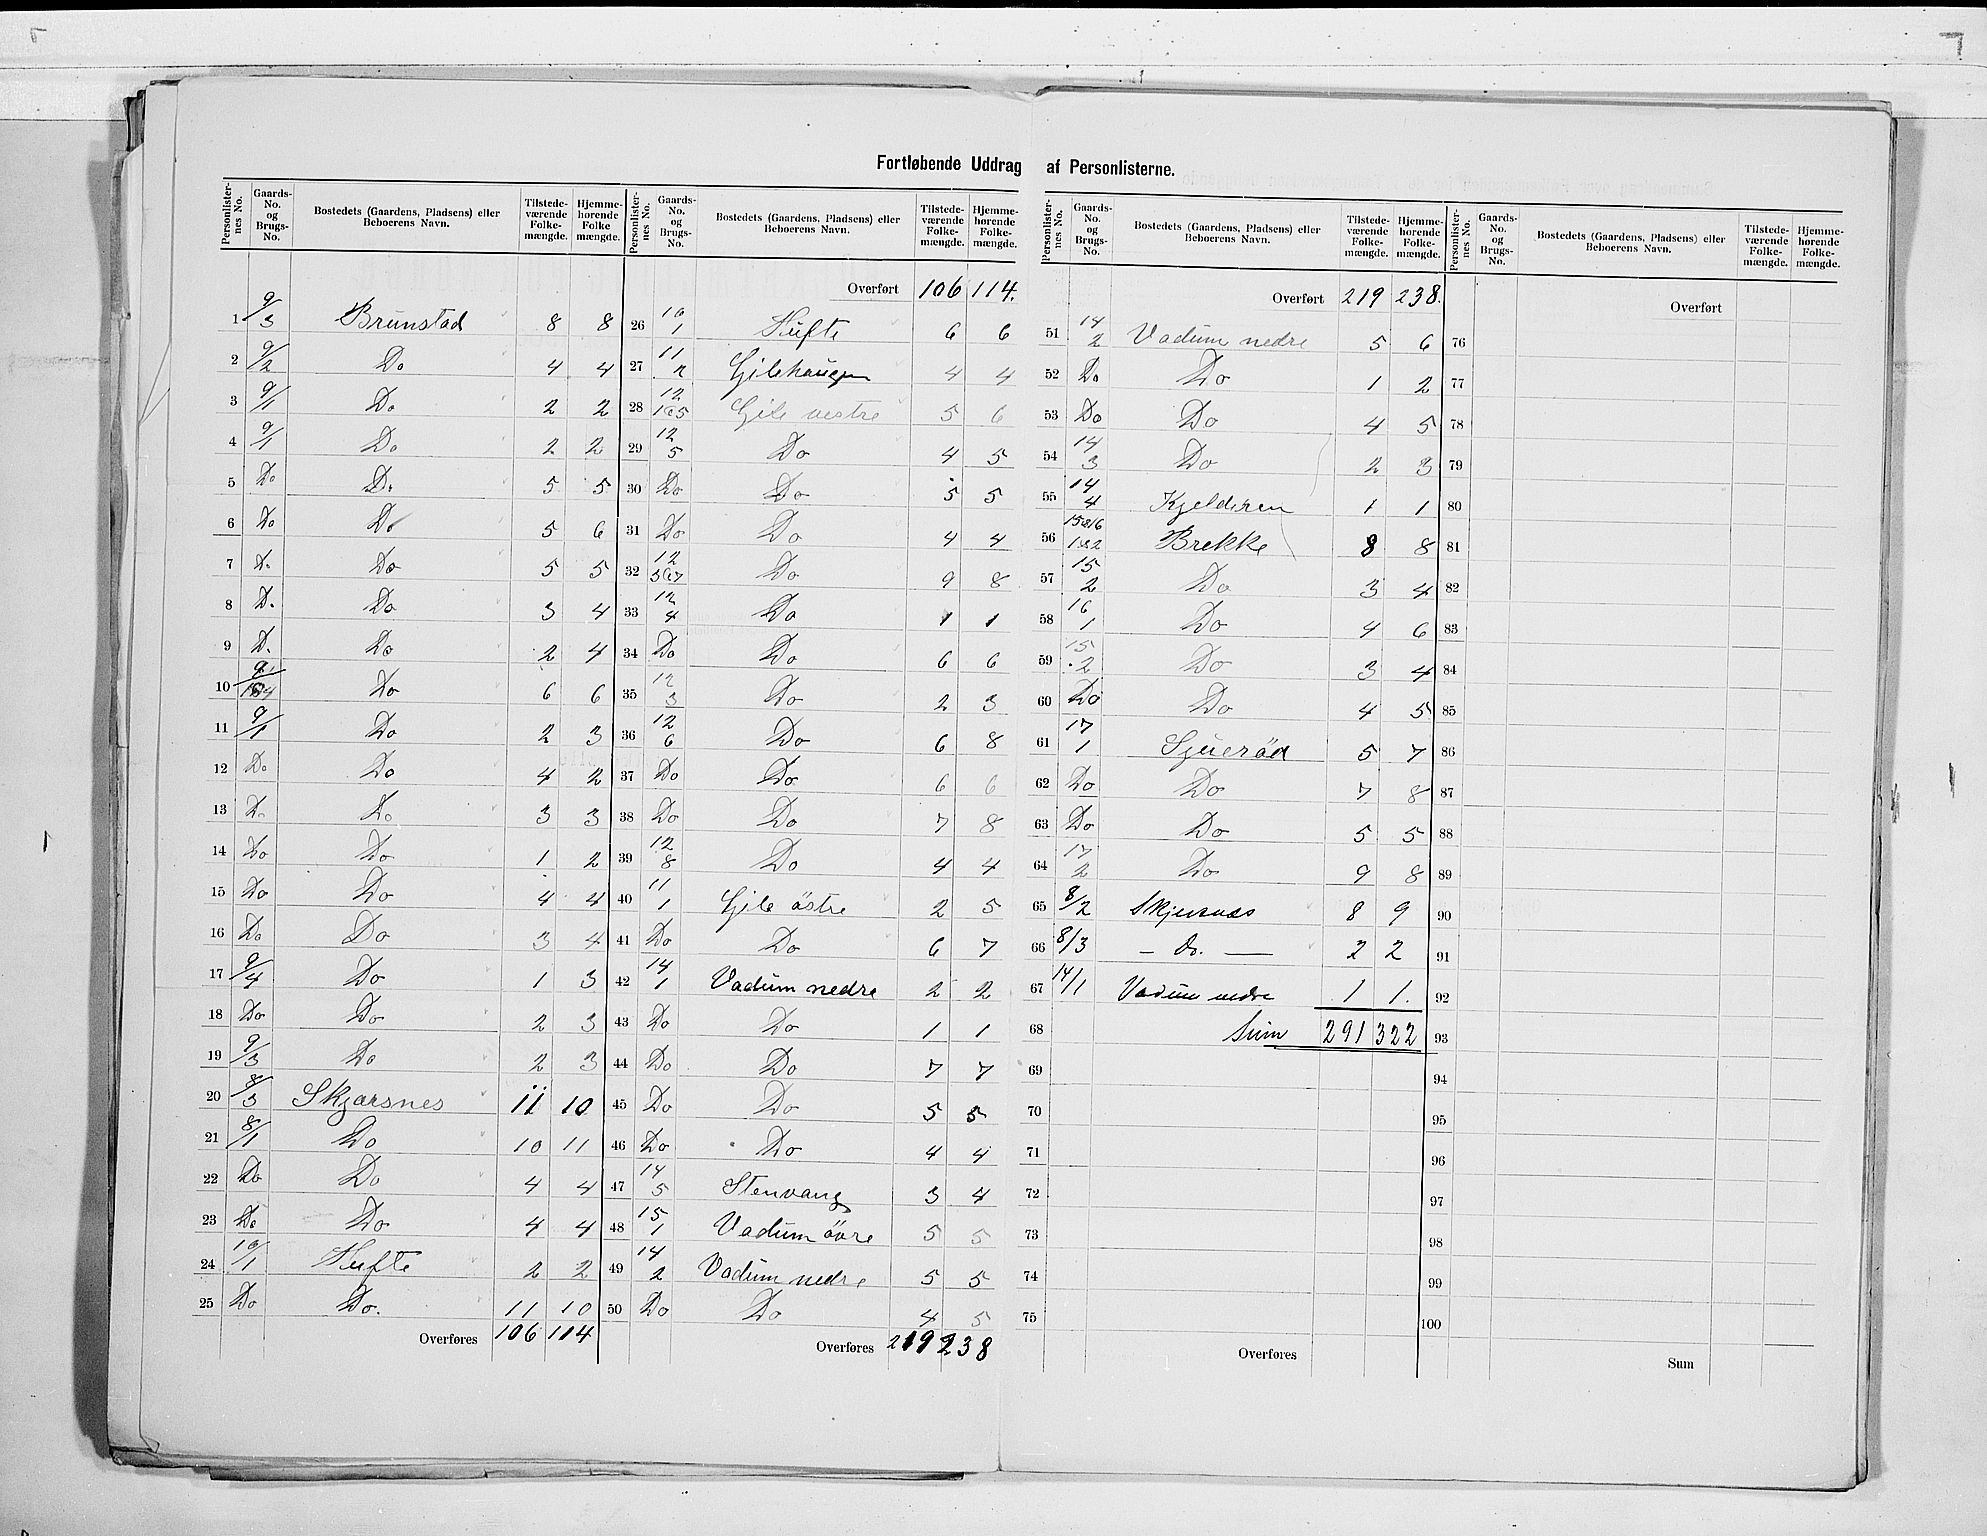 Fortløbende Uddrag af Personlisterne.
Personlisternes No. Gaards-No. og Brugs-No. Bostedets (Gaardens, Pladsens) eller Beboerens Navn. Tilstedeværende Folkemængde. Hjemmehørende Folke mængde.
1 9/3 Brunstad 8 8
2 9/2 Do 4 4
3 9/1 Do 2 2
4 9/1 Do 2 2
5 Do Do 5 5
6 Do Do 5 6
7 Do Do 5 5
8 Do Do 3 4
9 Do Do 2 4
10 9/ Do 6 6
11 9/1 Do 2 3
12 Do Do 4 2
13 Do Do 3 3
14 Do Do 1 2
15 Do Do 4 4
16 Do Do 3 4
17 9/4 Do 1 3
18 Do Do 2 3
19 9/3 Do 2 3
20 8/3 Skjærsnes 11 10
21 8/1 Do 10 11
22 Do Do 4 4
23 Do Do 4 4
24 10/1 Hufte 2 2
25 Do Do. 11 10
Overføres 106 114
Personlisternes No. Gaards-No. og Brugs-No. Bostedets (Gaardens, Pladsens) eller Beboerens Navn. Tilstedeværende Folkemængde. Hjemmehørende Folkemængde.
Overført 106 114.
26 10/1 Hufte 6 6
27 11/2 Gilehaugen 4 4
28 12/1 & 5 Gile vestre 5 6
29 12/5 Do 4 5
30 Do Do 5 5
31 Do Do 4 4
32 12/3 & 7 Do 9 8
33 12/4 Do 1 1
34 Do Do 6 6
35 12/3 Do 2 3
36 12/6 Do 6 8
37 Do Do 6 6
38 Do Do 7 8
39 12/8 Do 4 4
40 11/1 Gile östre 2 5
41 Do Do 6 7
42 14/1 Vadum nedre 2 2
43 Do Do 1 1
44 Do Do 7 7
45 Do Do 5 5
46 Do Do 4 4
47 14/5 Stenvang 3 4
48 15/1 Vadum övre 5 5
49 14/2 Vadum nedre 5 5
50 Do Do 4 5
Overføres 219 238
Personlisternes No. Gaards-No. og Brugs-No. Bostedets (Gaardens, Pladsens) eller Beboerens Navn. Tilstedeværende Folkemængde. Hjemmehørende Folkemængde.
Overført 219 238.
51 14/2 Vadum nedre 5 6
52 Do Do 1 2
53 Do Do 4 5
54 14/3 Do 2 3
55 14/4 Kjelderen 1 1
56 15&16/1&2 Brekke 8 8
57 15/2 Do 3 4
58 16/1 Do 4 6
59 15/2 Do 3 4
60 Do Do 4 5
61 17/1 Sjueröd 5 7
62 Do Do 7 8
63 Do Do 5 5
64 17/2 Do 9 8
65 8/2 Skjersnes 8 9
66 8/3 — do. — 2 2
67 14/1 Vadum nedre 1 1.
68 Sum 291 322
69
70
71
72
73
74
75
Overføres
Personlisternes No. Gaards-No. og Brugs-No. Bostedets (Gaardens, Pladsens) eller Beboerens Navn. Tilstedeværende Folkemængde. Hjemmehørende Folkemængde.
Overført
76
77
78
79
80
81
82
83
84
85
86
87
88
89
90
91
92
93
94
95
96
97
98
99
100
Sum